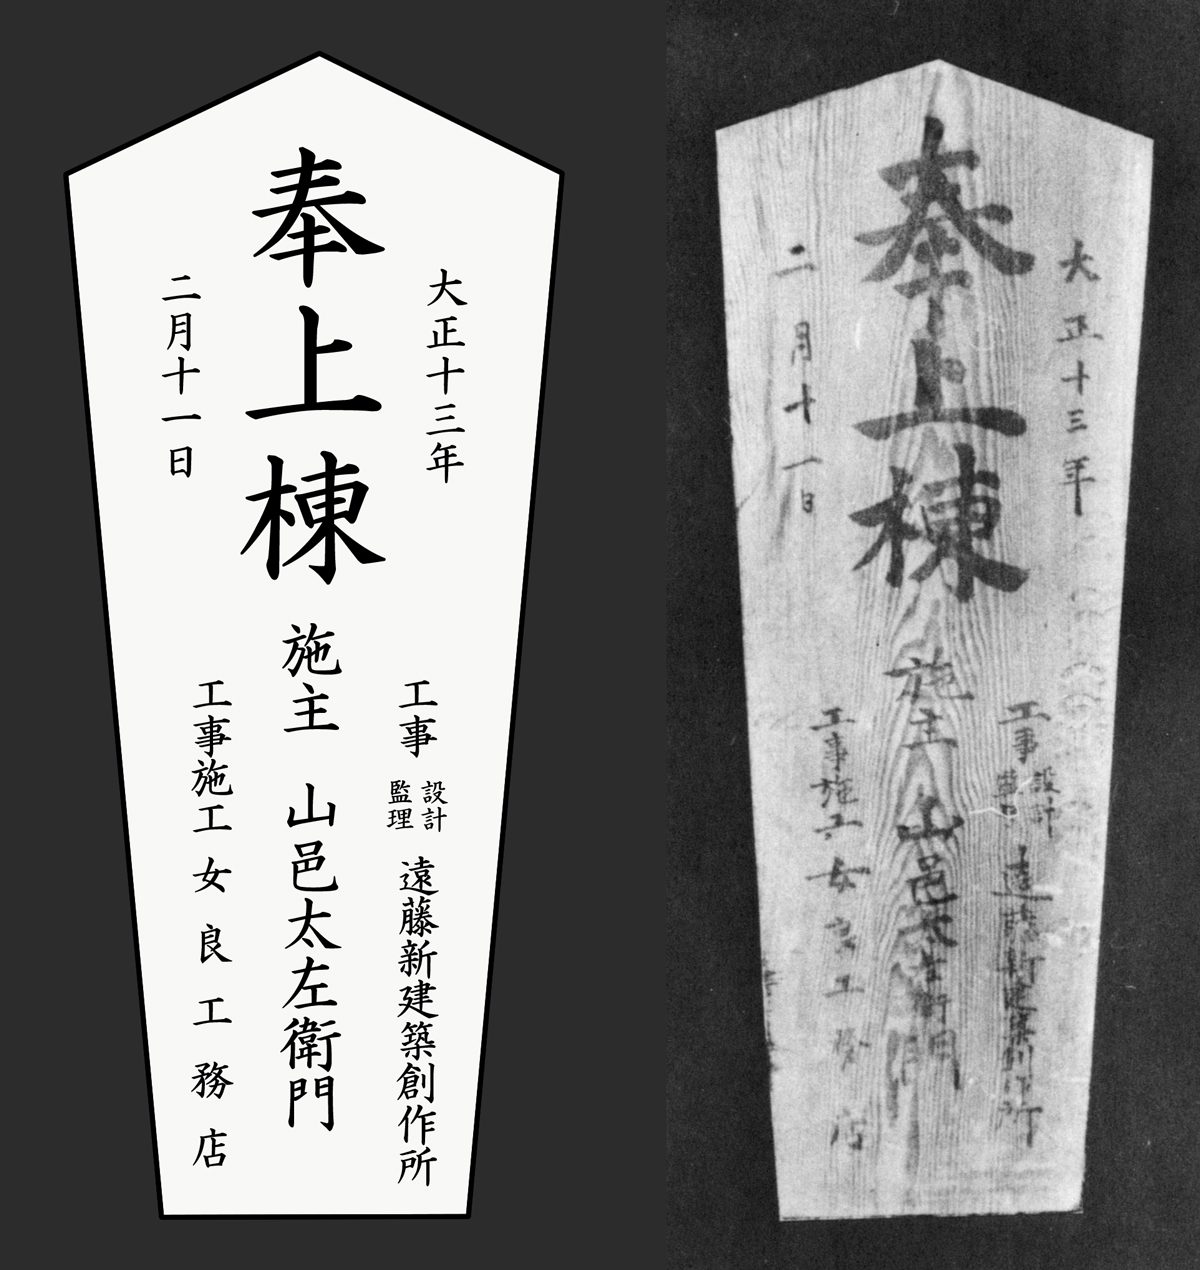 奉上棟
大正十三年
二月十一日
施主 山邑太左衛門
工事 設計 監理 遠藤新建築創作所
工事施工 女良工務店
奉上棟
大正十三年
二月十一日
施主 山邑太左衛門
工事 設計 監理 遠藤新建築創作所
工事施工 女良工務店